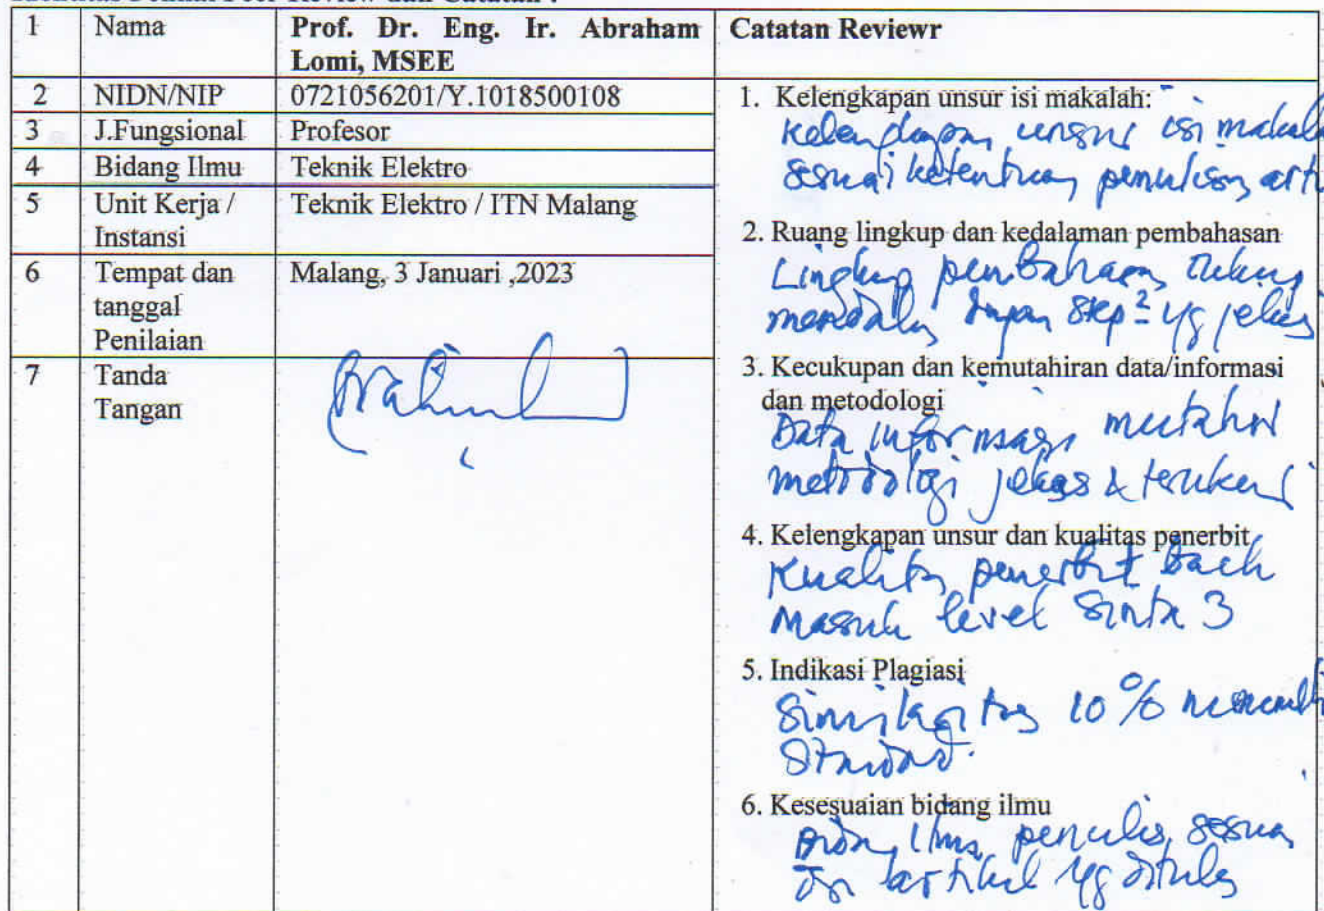 1 Nama Prof. Dr. Eng. Ir. Abraham Lomi, MSEE Catatan Reviewr
2 NIDN/NIP 0721056201/Y.1018500108
3 J.Fungsional Profesor
4 Bidang Ilmu Teknik Elektro
5 Unit Kerja / Instansi Teknik Elektro / ITN Malang
6 Tempat dan tanggal Penilaian Malang, 3 Januari ,2023
7 Tanda Tangan
1. Kelengkapan unsur isi makalah:
Kelengkapan unsur isi
sesuai ketentuan penulisan
2. Ruang lingkup dan kedalaman pembahasan
Lingkup pembahasan
mendalam dengan step² yg jelas
3. Kecukupan dan kemutahiran data/informasi
dan metodologi
Data informasi mutahir
metodologi jelas &
4. Kelengkapan unsur dan kualitas penerbit
Kualitas penerbit baik
masuk level Sinta 3
5. Indikasi Plagiasi
Similaritas 10% memenuhi
standard.
6. Kesesuaian bidang ilmu
Bidang ilmu penulis sesuai
dgn artikel yg ditulis